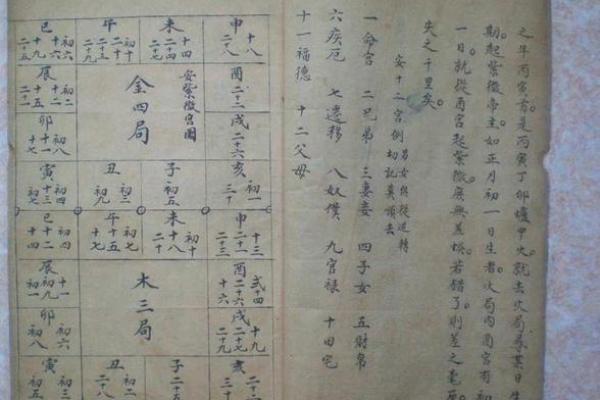 之年丙寅首是丙寅丁卯爐中火就去火局尋某日生
期起紫微帝主如正月初一日生者火局內酉宮有初
一日就從酉宮起紫微度無差
若錯了則差之毫
失之千里矣
安十二宮例
男女俱從逆轉
切記莫順去
一命宮 二兄弟 三妻妾 四子女 五財帛
六疾厄 七遷移 八奴僕 九官祿 十田宅
十一福德 十二父母
申 十八 二八
未 十四 二十四 二十七
午 初十 二十 二十三 二十九
巳 初六 十六 十九 二十五
酉 二十二
安紫微宮圖
金四局
辰 初二 十二 十五 二十一
戌 二十六
卯 初八 十一 十七
亥 初一 三十
子 初五
丑 初三 初九
寅 初四 十三 初七
申 十三 二十一
未 初十 十八 二十
午 初七 十五 十七
巳 初四 十二 十四
酉 弍十四 二十六 十六
木三局
辰 十一 初九 初一
戌 十九 二十七 二十九
卯 初六 初八
亥
子 二十五
丑 初二 二十八
寅 初三 初五